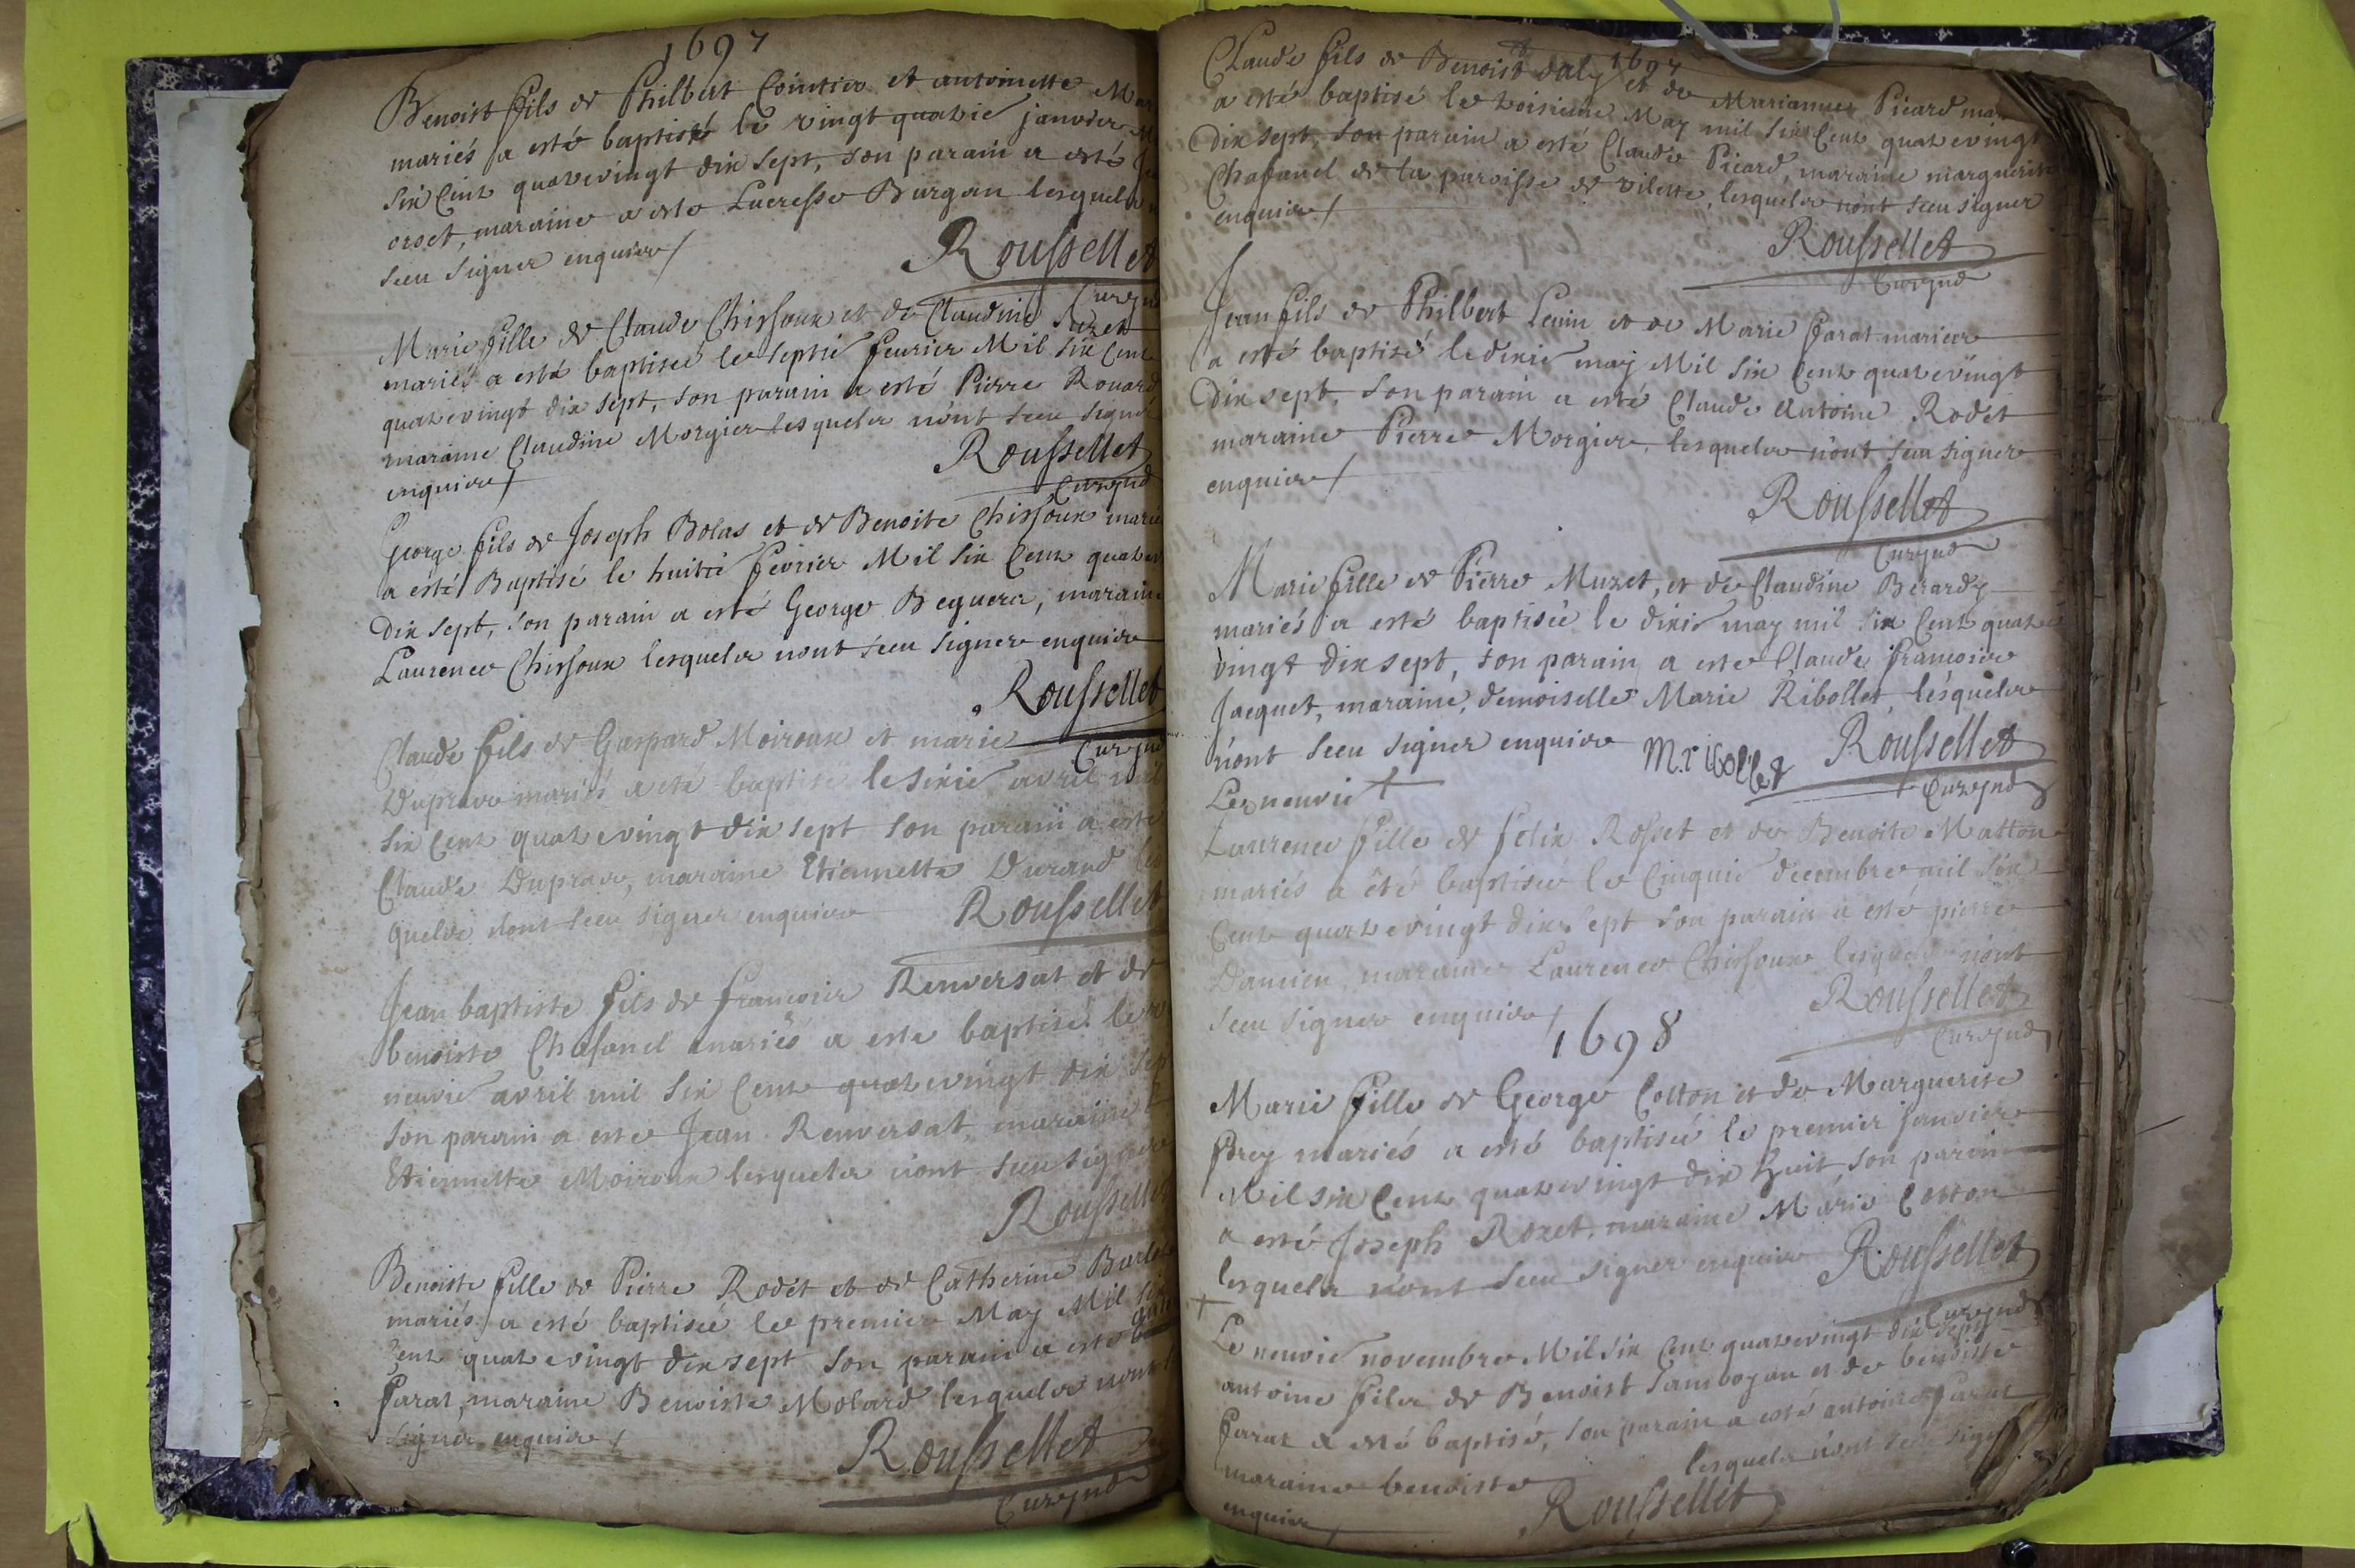 1697
Benoist fils de Philbert Cointier et antoinette
mariés a esté baptisé le vingt quatrie janvier
Six Cent quatrevingt dix sept, son parain a esté
orset, maraine a este Lucresse Burgan lesquels
sceu signer enquire
Roussellet
Curé
Marie fille de Claude Chissoux et de Claudine Rozet
mariés a esté baptisée le septie feurier Mil six Cent
quatrevingt dix sept, son parain a esté Pierre Rouard
maraine Claudine Morgier lesquels nont sceu signer
enquire
Roussellet
Curé
George fils de Joseph Bolas et de Benoite Chissoux mariés
a esté Baptisé le huitie fevrier Mil six Cent quatre
Dix sept, son parain a esté George Beguera, maraine
Laurence Chissoux lesquels nont sceu signer enquire
Roussellet
Curé
Claude fils de Gaspard Moiroux et marie
Dupras mariés a eté baptisé le sixie avril mil
six Cent quatrevingt dix sept son parain a esté
Claude Dupras, maraine Etiennette Durand les
quels nont sceu signer enquire
Roussellet
Jean baptiste fils de francois Renversat et de
benoiste Chafanel mariés a este baptisé le
neuvie avril mil six Cent quatrevingt dix sept
son parain a este Jean Renversat, maraine
Etiennette Moiroux lesquels nont sceu signer
Roussellet
Benoiste fille de Pierre Rodet et de Catherine
mariés a esté baptisée le premier May Mil six
Cent quatrevingt dix sept son parain a esté
farat, maraine Benoiste Molard lesquels nont
signer enquire
Roussellet
Curé
1697
Claude fils de Benoist Daly et de Marianne Picard
a esté baptisé le troisieme May mil six Cent quatrevingt
Dix sept, son parain a esté Claude Picard, maraine marguerite
Chafanel de la paroisse de vilette, lesquels nont sceu signer
enquire
Roussellet
Curé
Jean fils de Philbert Penin et de Marie farat mariés
a esté baptisé le dixie may Mil six Cent quatrevingt
Dix sept, son parain a esté Claude Antoine Rodet
maraine Pierre Morgier, lesquels nont sceu signer
enquire
Roussellet
Curé
Marie fille de Pierre Muzet, et de Claudine Berardy
mariés a esté baptisée le dixie may mil six Cent quatre
vingt dix sept, son parain a este Claude francois
Jacquet, maraine, demoiselle Marie Ribollet, lesquels
nont sceu signer enquire M. ribollet Roussellet
Le neuvie Curé
Laurence fille de felix Rosset et de Benoite Matton
mariés a êté baptisée le Cinquie decembre mil six
Cent quatrevingt dix sept son parain a esté pierre
Damien, maraine Laurence Chissoux lesquels nont
sceu signer enquire
Roussellet
Curé
1698
Marie fille de George Cotton et de Marguerite
frey mariés a esté baptisée le premier janvier
Mil six Cent quatrevingt dix huit, son parain
a esté Joseph Rozet, maraine Marie Cotton
lesquels nont sceu signer enquire Roussellet
Curé
Le neuvie novembre Mil six Cent quatrevingt dix sept
antoine fils de Benoist Tamboyan et de benoisse
farat a esté baptisé, son parain a esté antoine farat
maraine benoiste lesquels nont sceu signer
enquire Roussellet